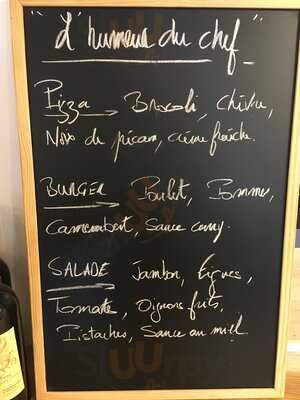 "L'humeur du chef"
Pizza → Brocoli, Chèvre,
Noix de pécan, crème fraîche.
BURGER Poulet, Pomme,
Camembert, Sauce curry.
SALADE Jambon, Figues,
Tomate, Oignons frits,
Pistaches, Sauce au miel